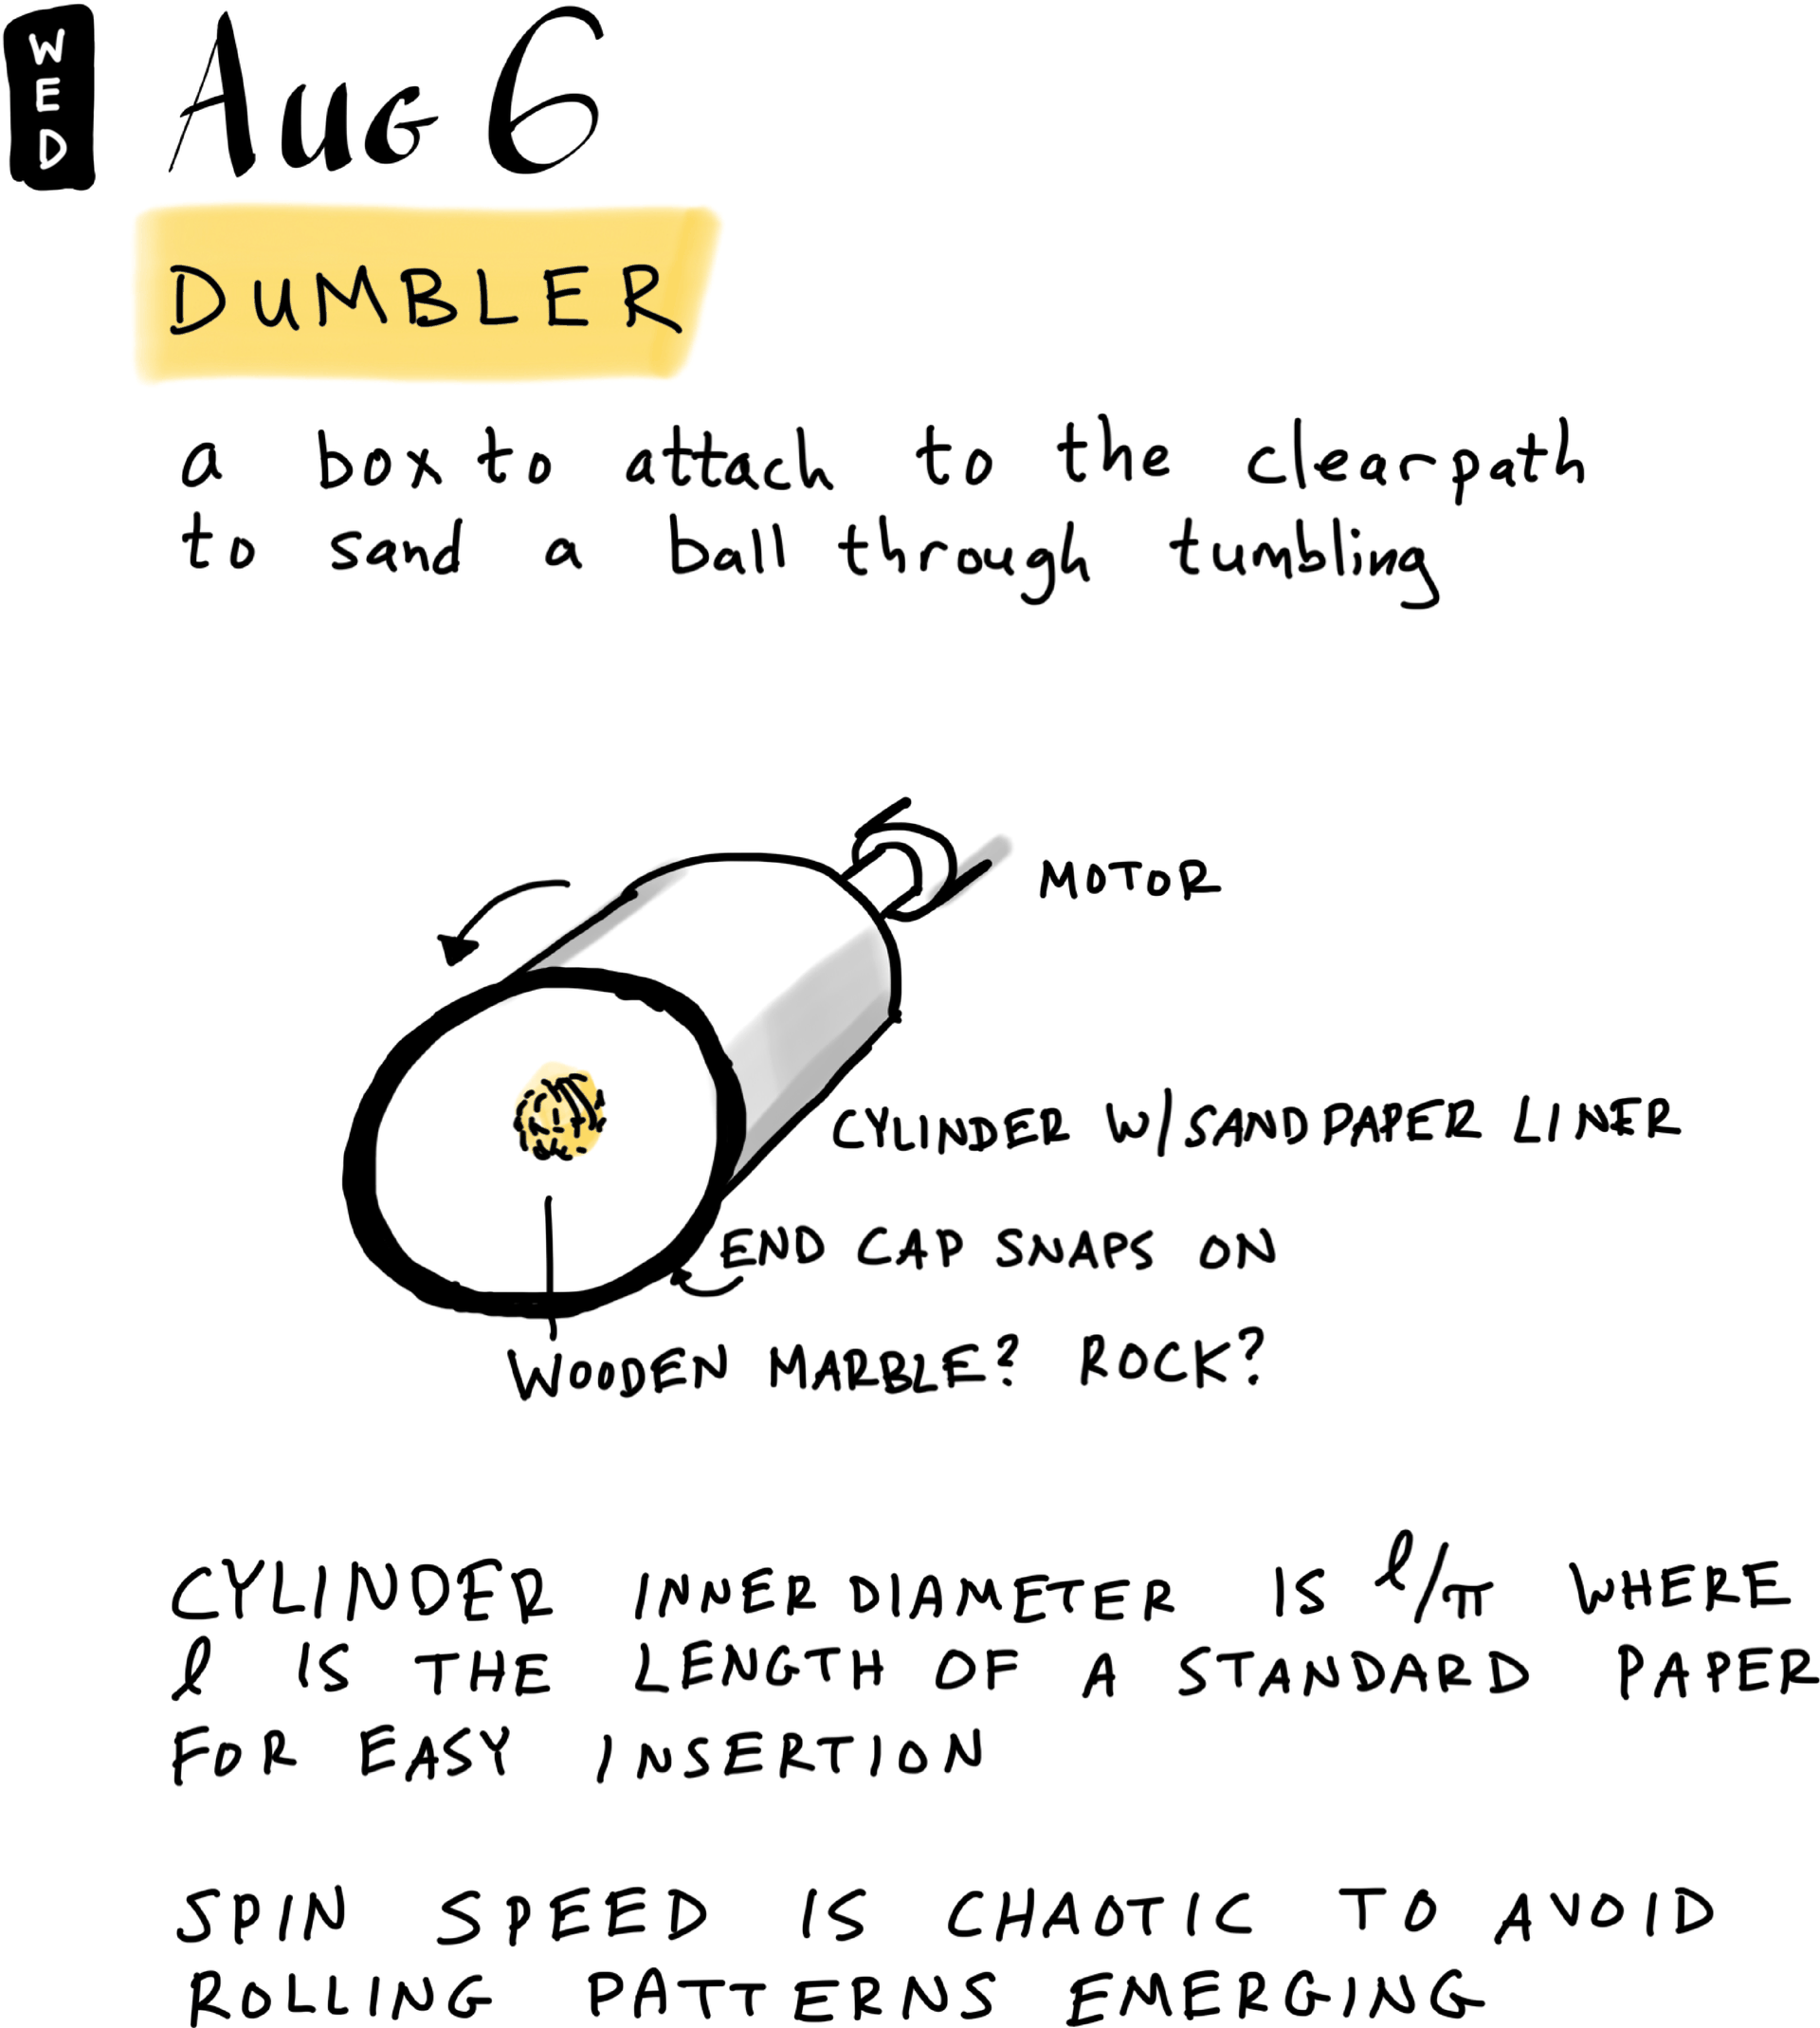 WED
Aug 6
DUMBLER
a box to attach to the clearpath
to sand a ball through tumbling
MOTOR
CYLINDER W/SANDPAPER LINER
END CAP SNAPS ON
WOODEN MARBLE? ROCK?
CYLINDER INNER DIAMETER IS ℓ/π WHERE
ℓ IS THE LENGTH OF A STANDARD PAPER
FOR EASY INSERTION
SPIN SPEED IS CHAOTIC TO AVOID
ROLLING PATTERNS EMERGING